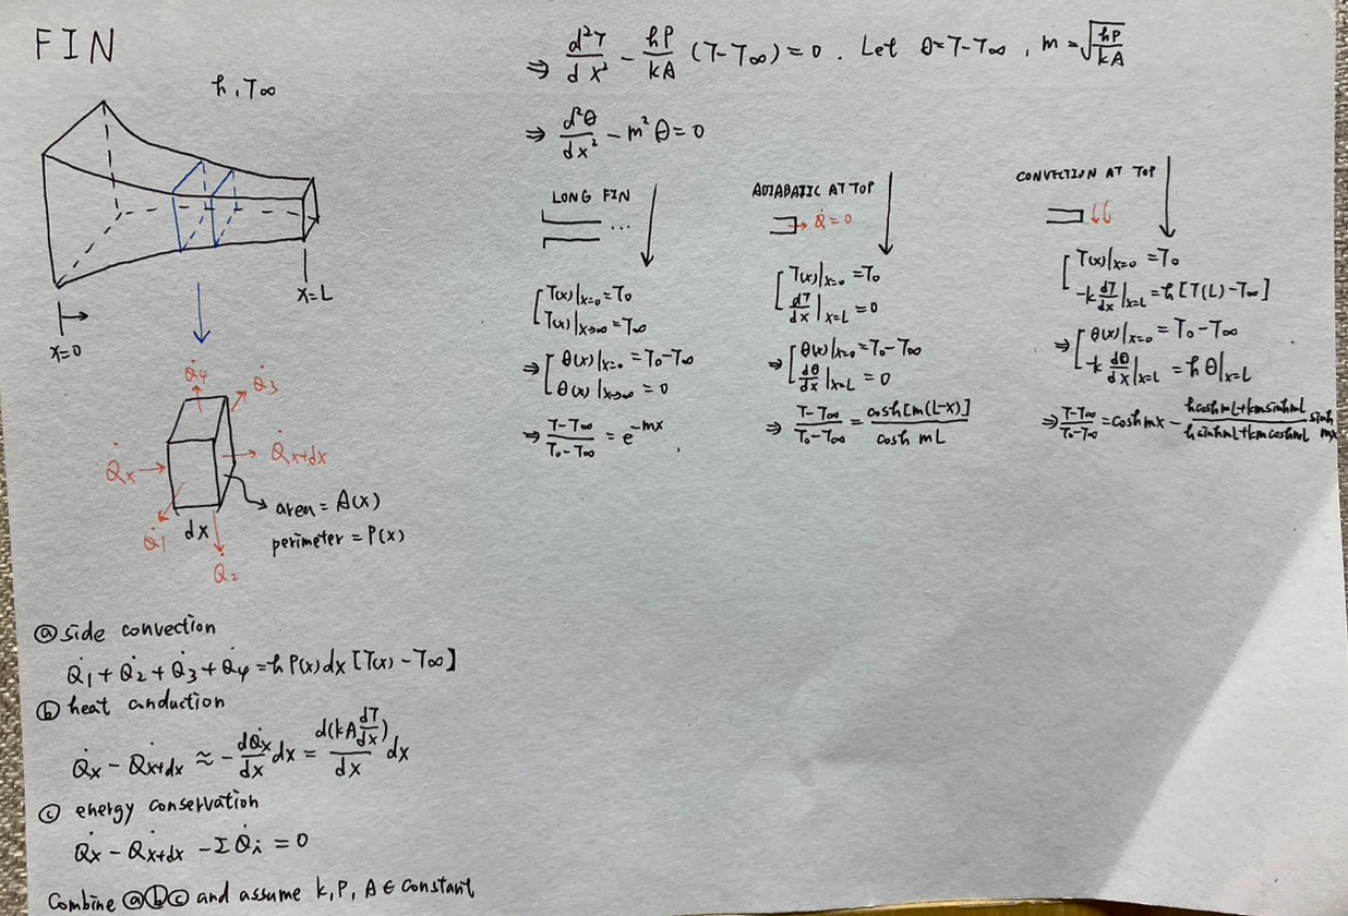 FIN
h, T∞
x=0
x=L
Q̇4
Q̇3
Q̇x
Q̇x+dx
Q̇1
dx
Q̇2
area = A(x)
perimeter = P(x)
ⓐ side convection
Q̇1 + Q̇2 + Q̇3 + Q̇4 = h P(x) dx [T(x) - T∞]
ⓑ heat conduction
Q̇x - Q̇x+dx ≈ - dQ̇x/dx dx = d(kA dT/dx)/dx dx
ⓒ energy conservation
Q̇x - Q̇x+dx - Σ Q̇i = 0
Combine ⓐⓑⓒ and assume k, P, A ∈ constant
⇒ d²T/dx² - hP/kA (T - T∞) = 0 . Let θ = T - T∞ , m = √(hP/kA)
⇒ d²θ/dx² - m²θ = 0
LONG FIN
...
[ T(x)|x=0 = T0
T(x)|x→∞ = T∞
⇒ [ θ(x)|x=0 = T0 - T∞
θ(x)|x→∞ = 0
⇒ T-T∞/T0-T∞ = e^-mx
ADIABATIC AT TOP
Q̇ = 0
[ T(x)|x=0 = T0
dT/dx|x=L = 0
⇒ [ θ(x)|x=0 = T0 - T∞
dθ/dx|x=L = 0
⇒ T-T∞/T0-T∞ = cosh[m(L-x)]/cosh mL
CONVECTION AT TOP
[ T(x)|x=0 = T0
-k dT/dx|x=L = h [T(L) - T∞]
⇒ [ θ(x)|x=0 = T0 - T∞
-k dθ/dx|x=L = h θ|x=L
⇒ T-T∞/T0-T∞ = cosh mx - hcosh mL+km sinh mL/h sinh mL+km cosh mL sinh mx